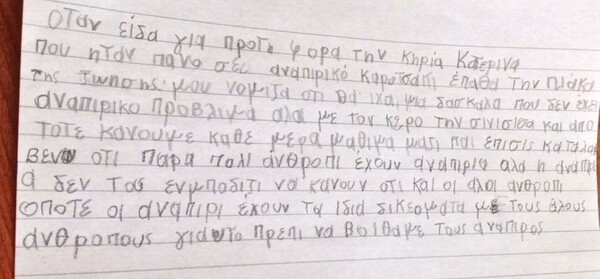 Οταν είδα για προτι φορα την κηρία Κατερινα
που ηταν πανο σει αναπιρικό καροτσακι επαθα την πλάκα
της ζωης μου νομιζα οτι θα ιχα μια δασκαλα που δεν έχει
αναπιρικο προβλιμα αλα με τον κερο την σινισισα και απο
τοτε κανουμε καθε μερα μαθιμα μαζι και επισις καταλα
βενω οτι παρα πολι ανθροπι έχουν αναπιρία αλα η αναπιρι
α δεν τους ενμποδιζι να κανουν οτι και οι αλοι ανθροπι
οποτε οι αναπιρι έχουν τα ιδια δικεοματα με τους άλους
άνθροπους για υτο πρεπι να βοιθαμε τους αναπιρος